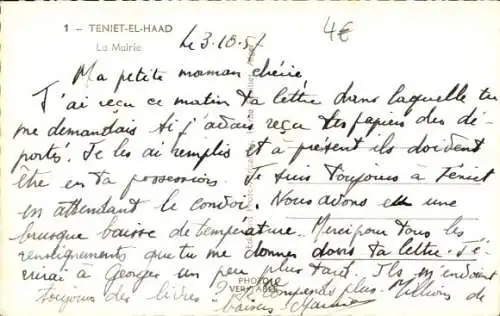 1 — TENIET-EL-HAAD
La Mairie
4€
Le 3.10.57
Ma petite maman chérie,
J'ai reçu ce matin ta lettre dans laquelle tu
me demandais si j'avais reçu tes papiers des dé-
portés. Je les ai remplis et à présent ils doivent
être en ta possession. Je suis toujours à Téniet
en attendant le convoi. Nous avons eu une
brusque baisse de température. Merci pour tous les
renseignements que tu me donnes dans ta lettre. J'é-
crirai à Georges un peu plus tard. Ils m'envoient
toujours des livres ? Je comprends plus. Millions de
baisers
PHOTO